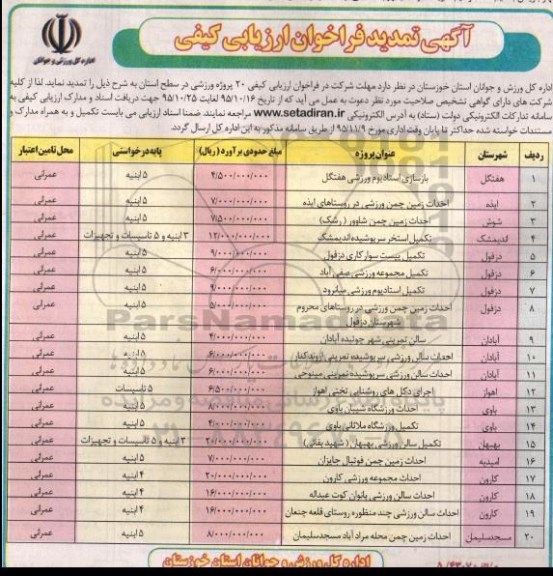 آگهی تمدید فراخوان ارزیابی کیفی
اداره کل ورزش و جوانان
اداره کل ورزش و جوانان استان خوزستان در نظر دارد مهلت شرکت در فراخوان ارزیابی کیفی ۲۰ پروژه ورزشی در سطح استان به شرح ذیل را تمدید نماید. لذا از کلیه
شرکت های دارای گواهی تشخیص صلاحیت مورد نظر دعوت به عمل می آید که از تاریخ ۹۵/۱۰/۱۶ لغایت ۹۵/۱۰/۲۵ جهت دریافت اسناد و مدارک ارزیابی کیفی به
سامانه تدارکات الکترونیکی دولت (ستاد) به آدرس الکترونیکی www.setadiran.ir مراجعه نمایند. ضمنا اسناد ارزیابی می بایست تکمیل و به همراه مدارک و
مستندات خواسته شده حداکثر تا پایان وقت اداری مورخ ۹۵/۱۱/۹ از طریق سامانه مذکور به این اداره کل ارسال گردد.
ردیف شهرستان عنوان پروژه مبلغ حدودی برآورد (ریال) پایه درخواستی محل تامین اعتبار
۱ هفتگل بازسازی استادیوم ورزشی هفتگل ۴/۵۰۰/۰۰۰/۰۰۰ ۵ ابنیه عمرانی
۲ ایذه احداث زمین چمن ورزشی در روستاهای ایذه ۷/۰۰۰/۰۰۰/۰۰۰ ۵ ابنیه عمرانی
۳ شوش احداث زمین چمن شاوور ۷/۵۰۰/۰۰۰/۰۰۰ ۵ ابنیه عمرانی
۴ اندیمشک تکمیل استخر سرپوشیده اندیمشک ۱۲/۰۰۰/۰۰۰/۰۰۰ ۳ ابنیه و ۵ تاسیسات و تجهیزات عمرانی
۵ دزفول تکمیل پیست سوارکاری دزفول ۹/۰۰۰/۰۰۰/۰۰۰ ۵ ابنیه عمرانی
۶ دزفول تکمیل مجموعه ورزشی صفی آباد ۶/۰۰۰/۰۰۰/۰۰۰ ۵ ابنیه عمرانی
۷ دزفول تکمیل استادیوم ورزشی میانرود ۹/۰۰۰/۰۰۰/۰۰۰ ۵ ابنیه عمرانی
۸ دزفول احداث زمین چمن ورزشی در روستاهای محروم ۵/۰۰۰/۰۰۰/۰۰۰ ۵ ابنیه عمرانی
شهرستان دزفول
۹ آبادان سالن تمرینی شهر چوئبده آبادان ۴/۰۰۰/۰۰۰/۰۰۰ ۵ ابنیه عمرانی
۱۰ آبادان احداث سالن ورزشی سرپوشیده تمرینی اروندکنار ۶/۰۰۰/۰۰۰/۰۰۰ ۵ ابنیه عمرانی
۱۱ آبادان احداث سالن ورزشی سرپوشیده تمرینی مینوحی ۶/۰۰۰/۰۰۰/۰۰۰ ۵ ابنیه عمرانی
۱۲ اهواز اجرای دکل های روشنایی تختی اهواز ۶/۵۰۰/۰۰۰/۰۰۰ ۵ تاسیسات عمرانی
۱۳ باوی احداث ورزشگاه شیبان باوی ۸/۰۰۰/۰۰۰/۰۰۰ ۵ ابنیه عمرانی
۱۴ باوی تکمیل ورزشگاه ملاثانی باوی ۴/۰۰۰/۰۰۰/۰۰۰ ۵ ابنیه عمرانی
۱۵ بهبهان تکمیل سالن ورزشی بهبهان ۲۰/۰۰۰/۰۰۰/۰۰۰ ۳ ابنیه و ۵ تاسیسات و تجهیزات عمرانی
۱۶ امیدیه احداث زمین چمن فوتبال جایزان ۷/۰۰۰/۰۰۰/۰۰۰ ۵ ابنیه عمرانی
۱۷ کارون احداث مجموعه ورزشی کارون ۲۰/۰۰۰/۰۰۰/۰۰۰ ۴ ابنیه عمرانی
۱۸ کارون احداث سالن ورزشی بانوان کوت عبداله ۱۶/۰۰۰/۰۰۰/۰۰۰ ۴ ابنیه عمرانی
۱۹ کارون احداث سالن ورزشی چند منظوره روستای قلعه چنعان ۱۶/۰۰۰/۰۰۰/۰۰۰ ۴ ابنیه عمرانی
۲۰ مسجدسلیمان احداث زمین چمن محله مرادآباد مسجدسلیمان ۸/۰۰۰/۰۰۰/۰۰۰ ۵ ابنیه عمرانی
ParsNamadData
اداره کل ورزش و جوانان استان خوزستان